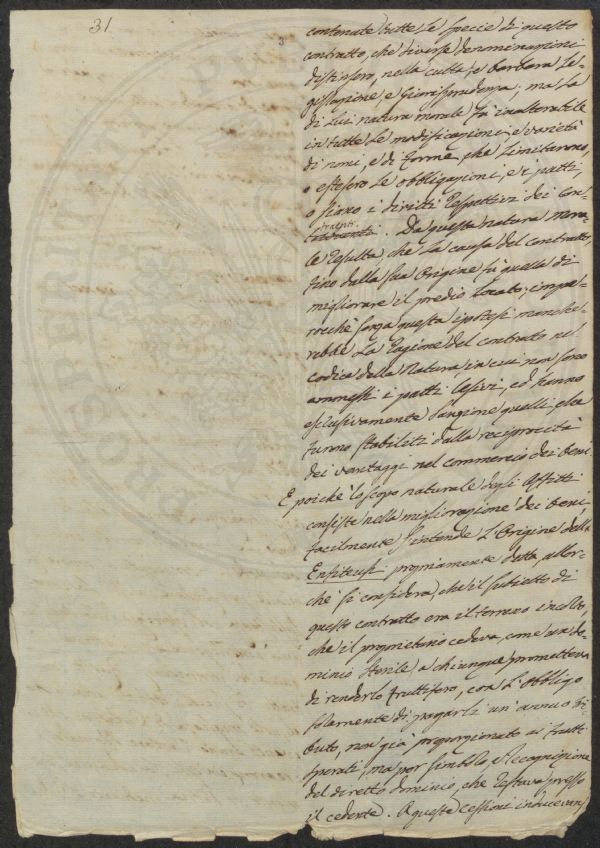 31.
3
contenute tutte le specie di questo
contratto, che diverse denominazioni
distinsero, nella culta, e barbara Le-
gislazione, e Giurisprudenza; ma la
di lui natura morale fù inalterabile
in tutte le modificazioni, e varietà
di nomi, e di forme, che limitarono,
o estesero le obbligazioni, e i patti,
o siano i diritti respettivi dei Con-
traenti. Da questa natura mora-
le resulta, che la causa del contratto,
fino dalla sua Origine fù quella di
migliorare il predio locato; impe-
rocchè senza questa ipotesi manche-
rebbe la ragione del contratto nel
Codice della Natura, in cui non sono
ammessi i patti lesivi, ed hanno
esclusivamente sanzione quelli, che
furono stabiliti dalla reciprocità
dei vantaggi nel commercio dei beni
E poichè lo scopo naturale degli Affitti
consiste nella migliorazione dei beni,
facilmente s'intende l'Origine della
Enfiteusi propriamente detta, allor-
chè si consideri, che il subietto di
questo contratto era il terreno incolto,
che il proprietario cedeva, come un do-
minio sterile a chiunque prometteva
di renderlo fruttifero, con l'obbligo
solamente di pagarli un'annuo tri-
buto, non già proporzionato ai frutti
sperati, ma per simbolo, e recognizione
del diretto dominio, che restava presso
il cedente. A queste cessioni inducevan
PUB
PROSPERI